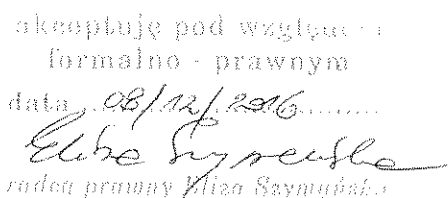 akceptuję pod względem
formalno - prawnym
data 08/12/2016
Eliza Szymańska
radca prawny Eliza Szymańska